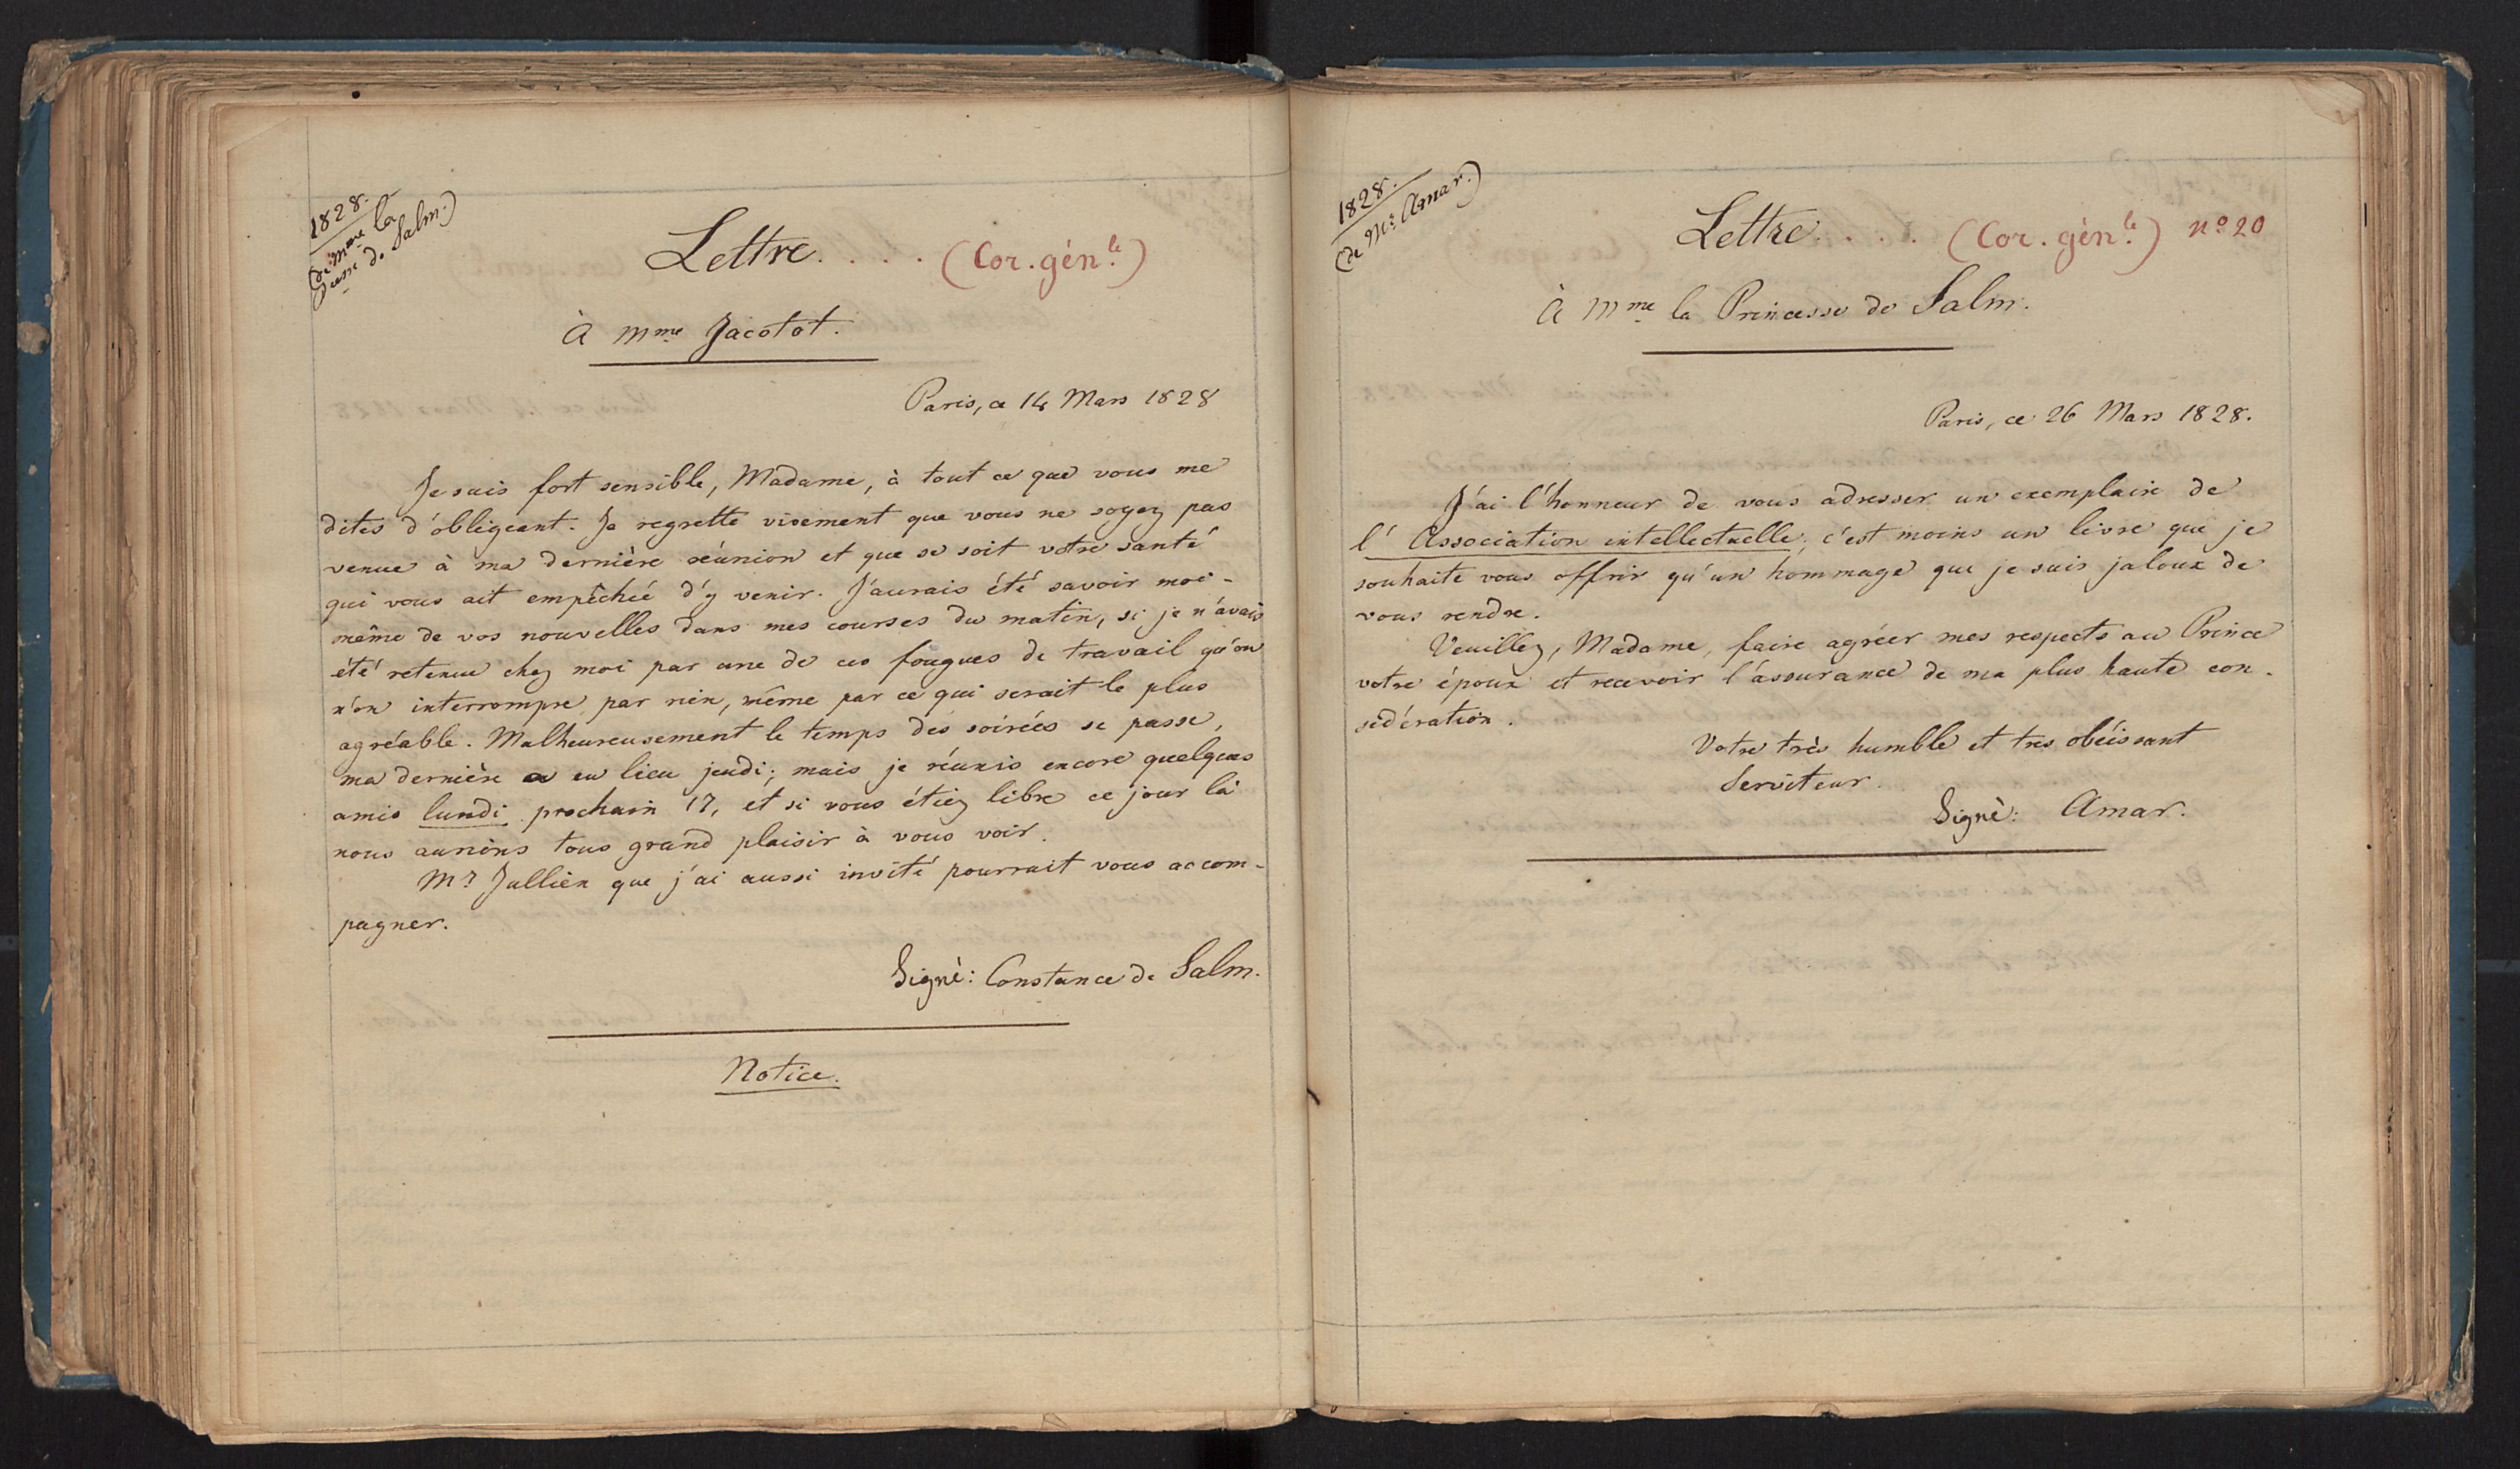 1828.
(de Mme la
Pcesse de Salm.)
Lettre. . . . (Cor. génle.)
À Mme Jacotot.
Paris, ce 14 Mars 1828
Je suis fort sensible, Madame, à tout ce que vous me
dites d'obligeant. Je regrette vivement que vous ne soyez pas
venue à ma dernière réunion et que se soit votre santé
qui vous ait empêchée d'y venir. J'aurais été savoir moi-
même de vos nouvelles dans mes courses du matin, si je n'avais
été retenue chez moi par une de ces fougues de travail qu'on
n'on interrompre par rien, même par ce qui serait le plus
agréable. Malheureusement le temps des soirées se passe,
ma dernière a eu lieu jeudi; mais je réunis encore quelques
amis lundi prochain 17, et si vous étiez libre ce jour là
nous aurions tous grand plaisir à vous voir.
Mr Jullien que j'ai aussi invité pourrait vous accom-
pagner.
Signé: Constance de Salm.
Notice.
1828.
(de Mr. Amar.)
Lettre. . . . (Cor. génle.) no 20
À Mme la Princesse de Salm.
Paris, ce 26 Mars 1828.
J'ai l'honneur de vous adresser un exemplaire de
l'Association intellectuelle; c'est moins un livre que je
souhaite vous offrir qu'un hommage que je suis jaloux de
vous rendre.
Veuillez, Madame, faire agréer mes respects au Prince
votre époux et recevoir l'assurance de ma plus haute con-
sidération.
Votre très humble et tres obéissant
Serviteur.
Signé: Amar.